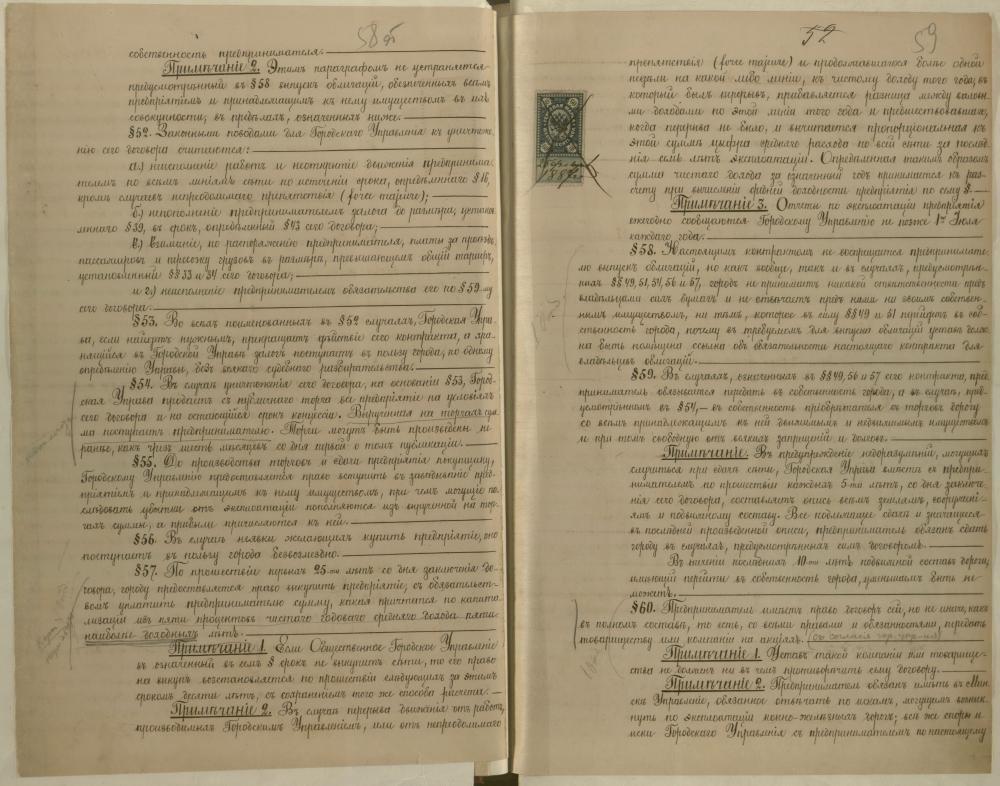 58 об
собственность предпринимателя.
Примѣчаніе 2. Этимъ параграфомъ не устраняется
предусмотрѣнный въ § 58 выпускъ облигацій, обезпеченныхъ всѣмъ
предпріятіемъ и принадлежащимъ къ нему имуществомъ въ ихъ
совокупности, въ предѣлахъ, означенныхъ ниже.
§ 52. Законными поводами для Городскаго Управленія къ уничтоже-
нію сего договора считаются:
а) неисполненіе работъ и неоткрытіе движенія предпринима-
телемъ по всѣмъ линіямъ сѣти по истеченіи срока, опредѣленнаго § 16,
кромѣ случаевъ непреодолимаго препятствія (force majeure);
б) непополненіе предпринимателемъ залога до размѣра, установ-
леннаго § 39, въ срокъ, опредѣленный § 43 сего договора;
в) взиманіе, по распоряженію предпринимателя, платы за проѣздъ
пассажировъ и перевозку грузовъ въ размѣрѣ, превышающемъ общій тарифъ,
установленный §§ 33 и 34 сего договора;
и г) неисполненіе предпринимателемъ обязательства его по § 59-му
сего договора.
§ 53. Во всѣхъ поименованныхъ въ § 52 случаяхъ, Городская Упра-
ва, если найдетъ нужнымъ, прекращаетъ дѣйствіе сего контракта, а хра-
нящійся въ Городской Управѣ залогъ поступаетъ въ пользу города, по одному
опредѣленію Управы, безъ всякаго судебнаго разбирательства.
§ 54. Въ случаѣ уничтоженія сего договора, на основаніи § 53, Город-
ская Управа продаетъ съ публичнаго торга все предпріятіе на условіяхъ
сего договора и на остающійся срокъ концессіи. Вырученная на торгахъ сум-
ма поступаетъ предпринимателю. Торги могутъ быть произведены не
ранѣе, какъ чрезъ шесть мѣсяцевъ со дня первой о томъ публикаціи.
§ 55. До производства торговъ и сдачи предпріятія покупщику,
Городскому Управленію предоставляется право вступить въ завѣдываніе пред-
пріятіемъ и принадлежащимъ къ нему имуществомъ, при чемъ могущіе по-
слѣдовать убытки отъ эксплоатаціи пополняются изъ вырученной на тор-
гахъ суммы, а прибыли причисляются къ ней.
§ 56. Въ случаѣ неявки желающихъ купить предпріятіе, оно
поступаетъ въ пользу города безвозмездно.
§ 57. По прошествіи первыхъ 25-ти лѣтъ со дня заключенія до-
говора, городу предоставляется право выкупить предпріятіе, съ обязательст-
вомъ уплатить предпринимателю сумму, какая причтется по капита-
лизаціи изъ пяти процентовъ чистаго годоваго средняго дохода пяти
наиболѣе доходныхъ лѣтъ.
Примѣчаніе 1. Если Общественное Городское Управленіе
въ означенный въ семъ § срокъ не выкупитъ сѣти, то его право
на выкупъ возстановляется по прошествіи слѣдующихъ за этимъ
срокомъ десяти лѣтъ, съ сохраненіемъ того же способа расчета.
Примѣчаніе 2. Въ случаѣ перерыва движенія отъ работъ,
производимыхъ Городскимъ Управленіемъ, или отъ непреодолимаго
52
59
препятствія (force majeure) и продолжавшагося болѣе одной
недѣли на какой либо линіи, къ чистому доходу того года, въ
который былъ перерывъ, прибавляется разница между валовы-
ми доходами по этой линіи того года и предшествовавшаго,
когда перерыва не было, и вычитается пропорціональная къ
этой суммѣ цыфра средняго расхода по всей сѣти за послѣд-
нія семь лѣтъ эксплоатаціи. Опредѣленная такимъ образомъ
сумма чистаго дохода за означенный годъ принимается къ раз-
счету при вычисленіи средней доходности предпріятія по сему §.
Примѣчаніе 3. Отчеты по эксплоатаціи предпріятія
ежегодно сообщаются Городскому Управленію не позже 1го Іюля
каждаго года.
§ 58. Настоящимъ контрактомъ не воспрещается предпринимате-
лю выпускъ облигацій, но какъ вообще, такъ и въ случаяхъ, предусмотрѣн-
ныхъ §§ 49, 51, 54, 56 и 57, городъ не принимаетъ никакой отвѣтственности предъ
владѣльцами сихъ бумагъ и не отвѣчаетъ предъ ними ни своимъ собствен-
нымъ имуществомъ, ни тѣмъ, которое въ силу §§ 49 и 51 перейдетъ въ соб-
ственность города, почему въ требуемомъ для выпуска облигацій уставѣ долж-
на быть помѣщена ссылка объ обязательности настоящаго контракта для
владѣльцевъ облигацій.
§ 59. Въ случаяхъ, означенныхъ въ §§ 49, 56 и 57 сего контракта, пред-
приниматель обязывается передать въ собственность города, а въ случаѣ, пред-
усмотрѣнномъ въ § 54, — въ собственность пріобрѣтателя съ торговъ дорогу
со всѣмъ принадлежащимъ къ ней движимымъ и недвижимымъ имуществомъ
и при томъ свободную отъ всякихъ запрещеній и долговъ.
Примѣчаніе. Въ предупрежденіе недоразумѣній, могущихъ
случиться при сдачѣ сѣти, Городская Управа вмѣстѣ съ предпри-
нимателемъ по прошествіи каждыхъ 5-ти лѣтъ, со дня заключе-
нія сего договора, составляетъ опись всѣмъ землямъ, сооружені-
ямъ и подвижному составу. Все подлежащее сдачѣ и значащееся
въ послѣдней произведенной описи, предприниматель обязанъ сдать
городу въ случаяхъ, предусмотрѣнныхъ симъ договоромъ.
Въ теченіи послѣднихъ 10-ти лѣтъ подвижной составъ дороги,
имѣющій перейти въ собственность города, уменьшаемъ быть не
можетъ.
§ 60. Предприниматель имѣетъ право договоръ сей, но не иначе, какъ
въ полномъ составѣ, то есть, со всѣми правами и обязанностями, передать
товариществу или компаніи на акціяхъ. (съ согласія гор. упр-нія)
Примѣчаніе 1. Уставъ такой компаніи или товарище-
ства не долженъ ни въ чемъ противорѣчить сему договору.
Примѣчаніе 2. Предприниматель обязанъ имѣть въ Мин-
скѣ Управленіе, обязанное отвѣчать по искамъ, могущимъ возник-
нуть по эксплоатаціи конно-желѣзныхъ дорогъ; всѣ же споры и
иски Городскаго Управленія съ предпринимателемъ по настоящему